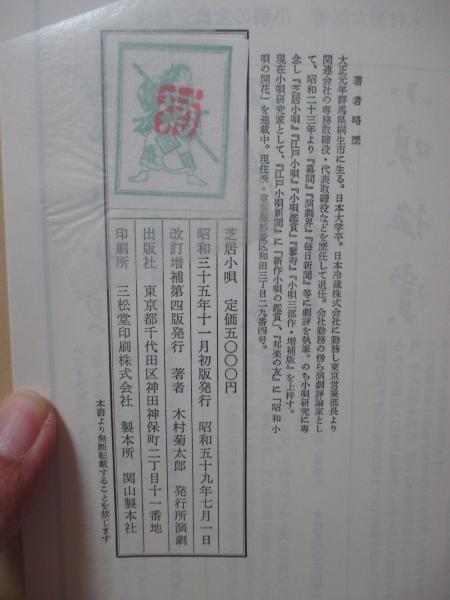 著者略歴
大正元年群馬県桐生市に生る。日本大学卒。日本冷蔵株式会社に勤務し東京営業部長より
関連会社の専務取締役・代表取締役などを歴任して退任。会社勤務の傍ら演劇評論家とし
て、昭和二十三年より『幕間』『演劇界』『毎日新聞』等に劇評を執筆。のち小唄研究に専
念し『芝居小唄』『江戸小唄』『小唄鑑賞』『小唄三部作・増補版』を上梓す。
現在小唄研究家として、『江戸小唄新聞』に「新作小唄の鑑賞」、『邦楽の友』に「昭和小
唄の開花」を連載中。現住所・東京都杉並区和田三丁目二九番四号。
芝居小唄 定価五〇〇〇円
昭和三十五年十一月初版発行 昭和五十九年七月一日
改訂増補第四版発行 著者 木村菊太郎 発行所演劇
出版社 東京都千代田区神田神保町二丁目十一番地
印刷所 三松堂印刷株式会社 製本所 関山製本社
本書より無断転載することを禁じます